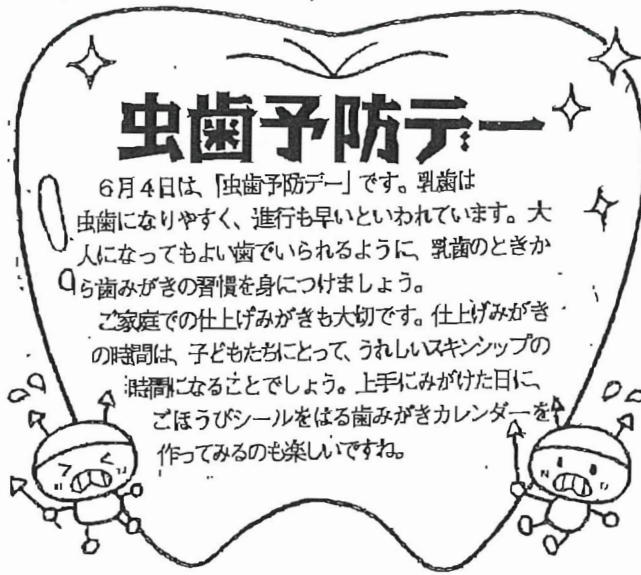 虫歯予防デー
6月4日は、「虫歯予防デー」です。乳歯は
虫歯になりやすく、進行も早いといわれています。大
人になってもよい歯でいられるように、乳歯のときか
ら歯みがきの習慣を身につけましょう。
ご家庭での仕上げみがきも大切です。仕上げみがき
の時間は、子どもたちにとって、うれしいスキンシップの
時間になることでしょう。上手にみがけた日に、
ごほうびシールをはる歯みがきカレンダーを
作ってみるのも楽しいですね。